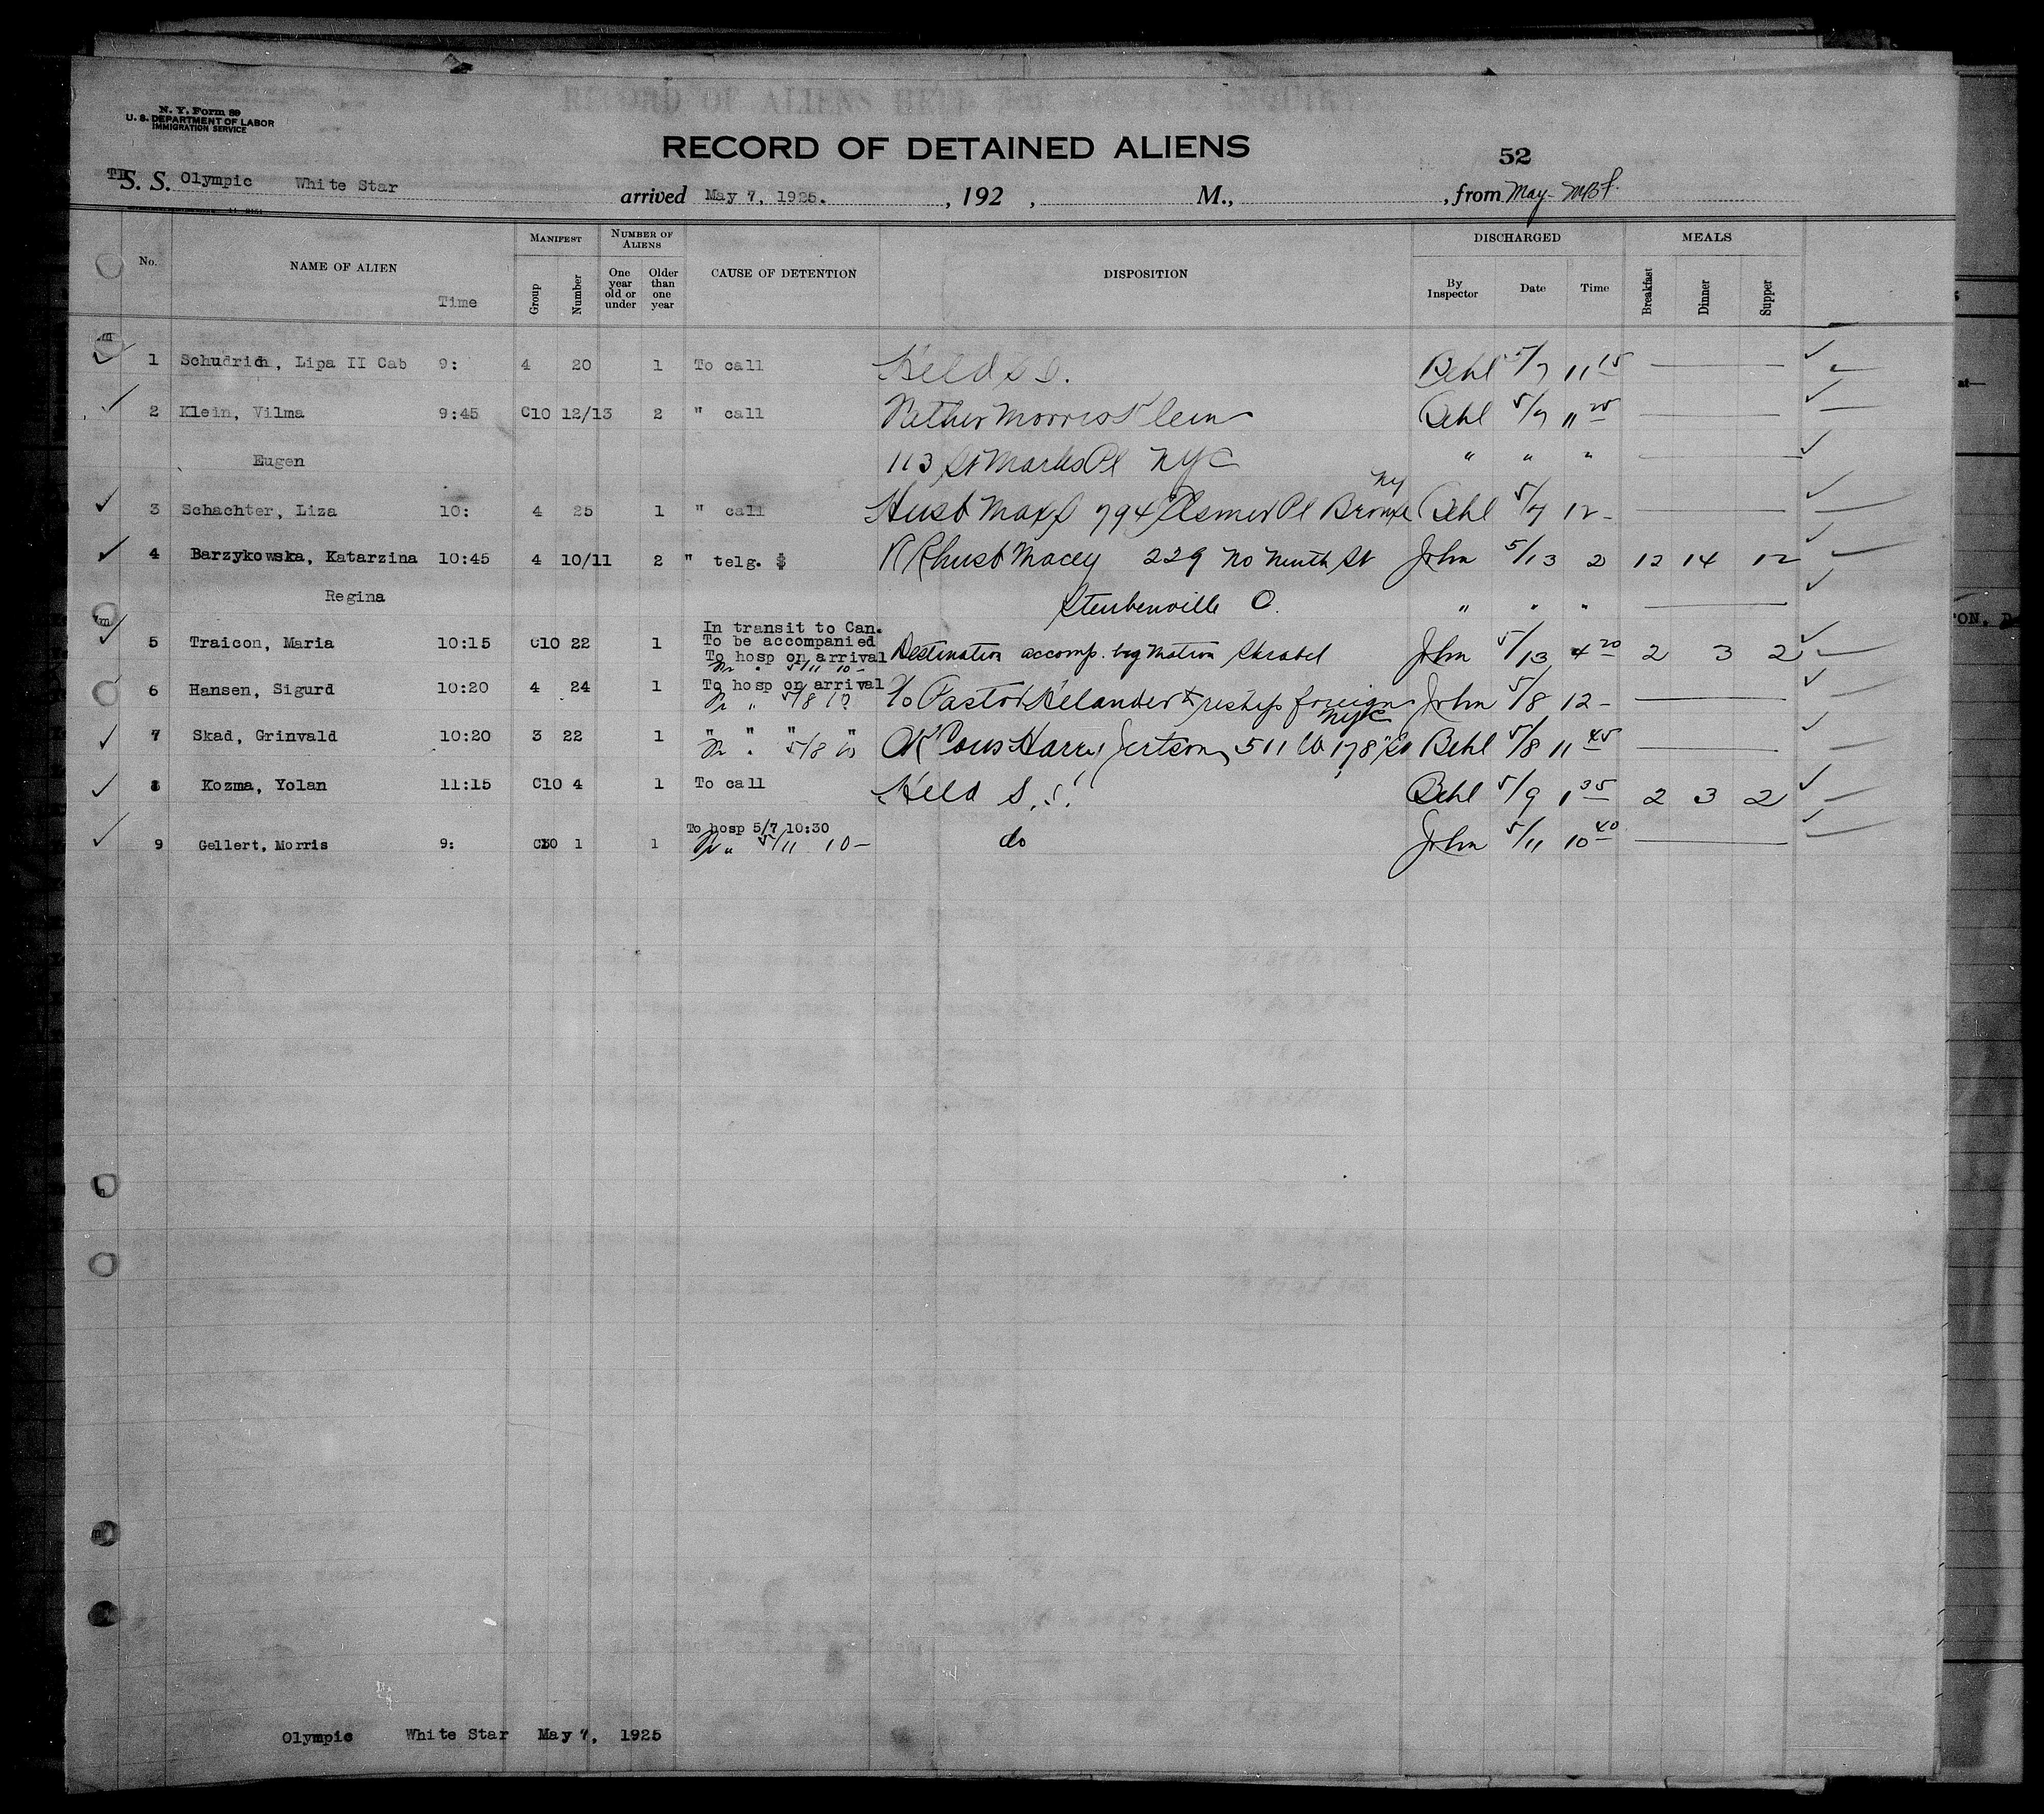 N. Y. Form 59
U. S. DEPARTMENT OF LABOR
IMMIGRATION SERVICE
RECORD OF DETAINED ALIENS
52
S. S. Olympic White Star arrived May 7, 1925. , 192 , M., , from May
No. NAME OF ALIEN Time MANIFEST Group Number NUMBER OF ALIENS One year old or under Older than one year CAUSE OF DETENTION DISPOSITION DISCHARGED By Inspector Date Time MEALS Breakfast Dinner Supper
1 Schudrich, Lipa II Cab 9: 4 20 1 To call Held S.I. Behl 5/7 11 15
2 Klein, Vilma 9:45 C10 12/13 2 " call Morris Klein Behl 5/7 11 25
Eugen 113 St Marks Pl NYC " " "
3 Schachter, Liza 10: 4 25 1 " call Husb Max 794 Elsmere Pl Bronx NY Behl 5/7 12-
4 Barzykowska, Katarzina 10:45 4 10/11 2 " telg. $ RR husb Macey 229 No Ninth St John 5/13 2 12 14 12
Regina Steubenville O. " " "
In transit to Can.
To be accompanied
5 Traicon, Maria 10:15 C10 22 1 To hosp on arrival Destination accomp. by Matron Skrabel John 5/13 4 20 2 3 2
" 5/11 10-
6 Hansen, Sigurd 10:20 4 24 1 To hosp on arrival c/o Pastor Helander to reship foreign John 5/8 12-
" 5/8 10
7 Skad, Grinvald 10:20 3 22 1 " " " " OK Cous Harry Jertson, 511 W 178" St NYC Behl 5/8 11 45
" 5/8 10
8 Kozma, Yolan 11:15 C10 4 1 To call Held S.I. Behl 5/9 1 35 2 3 2
To hosp 5/7 10:30
9 Gellert, Morris 9: C10 1 1 " 5/11 10- do John 5/11 10 40
Olympic White Star May 7, 1925